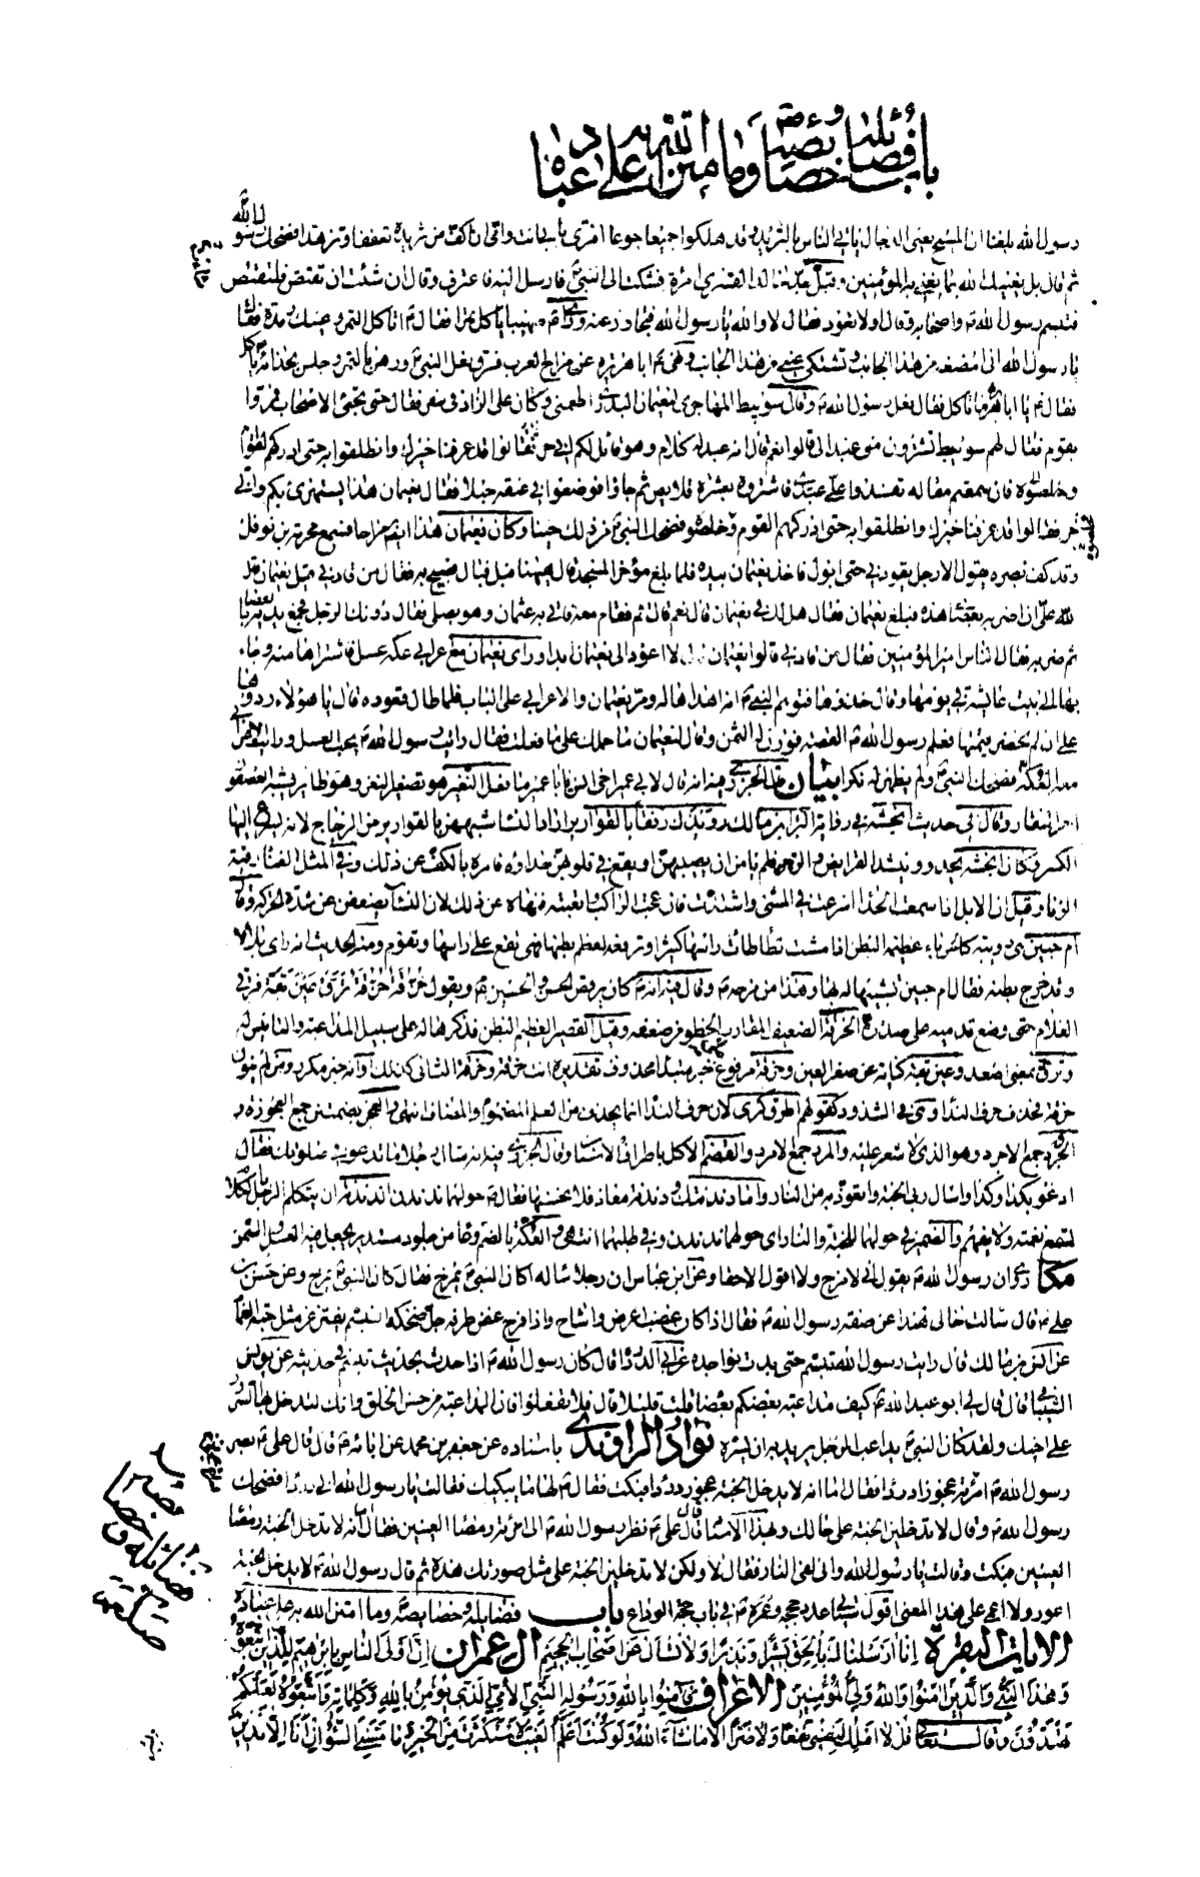 باب فضائله و خصائصه وما امتن الله به على عباده
رسول الله بلغنا ان المسيح يعنى الدجال ياتى الناس بالثريد وقد هلكوا جميعا جوعا افترى بابى انت وامى ان اكف من ثريده تعففا وتزهدا فضحك رسول الله
ثم قال بل يغنيك الله بما يغنى به المؤمنين وقبل جد خالد القسرى امرأة فشكت الى النبى فارسل اليه فاعترف وقال ان شئت ان تقتص فلتقتص
فتبسم رسول الله واصحابه وقال اولا تعود فقال لا والله يا رسول الله فتجاوز عنه وراى صهيبا ياكل تمرا فقال اتاكل التمر وعينك رمدة فقال
يا رسول الله انى امضغه من هذا الجانب وتشتكى عينى من هذا الجانب ونهى ابا هريرة عن مزاح العرب فسرق نعل النبى ورهن بالتمر وجلس بحذائه ياكل
فقال يا ابا هريرة ما تاكل فقال نعل رسول الله وقال سويبط المهاجرى لنعيمان البدرى اطعمنى وكان على الزاد فى سفر فقال حتى تجىء الاصحاب فمروا
بقوم فقال لهم سويبط تشترون منى عبدا لى قالوا نعم قال انه عبد له كلام وهو قائل لكم انى حر
وخلصوه
حر فقالوا قد عرفنا خبرك وانطلقوا به حتى ادركهم القوم وخلصوه فضحك النبى من ذلك حينا وكان نعيمان هذا ايضا مزاحا فسمع محرمة بن نوفل
وقد كف بصره يقول الا رجل يقودنى حتى ابول فاخذ نعيمان بيده فلما بلغ مؤخر المسجد قال ههنا فبل فبال فصيح به فقال من قادنى قيل نعيمان قال
لله على ان اضربه بعصاى هذه فبلغ نعيمان فقال هل لك فى نعيمان قال نعم قال قم فقام معه فاتى به عثمان وهو يصلى فقال دونك الرجل فجمع يديه بالعصا
ثم ضربه فقال الناس امير المؤمنين فقال من قادنى قالوا نعيمان قال لا اعود الى نعيمان ابدا وراى نعيمان مع اعرابى عكة عسل فاشتراها منه وجاء
بها الى بيت عائشة فى يومها وقال خذوها فتوهم النبى انه اهداها له ومر نعيمان والاعرابى على الباب فلما طال قعوده قال يا هؤلاء ردوها
على ان لم يحضر قيمتها فعلم رسول الله القصة فوزن له الثمن وقال لنعيمان ما حملك على ما فعلت فقال رايت رسول الله يحب العسل ورايت الاعرابى
معه العكة فضحك النبى ولم يظهر له نكرا بيان قال الجزرى فيه انه قال لابى عمير اخى انس يا ابا عمير ما فعل النغير هو تصغير النغر وهو طائر يشبه العصفور
احمر المنقار وقال فى حديث انجشة فى رواية البراء بن مالك رويدك رفقا بالقوارير اراد النساء شبههن بالقوارير من الزجاج لانه يسرع اليها
الكسر وكان انجشة يحدو وينشد القريض والرجز فلم يامن ان يصيبهن او يقع فى قلوبهن حداؤه فامره بالكف عن ذلك وفى المثل الغناء رقية
الزنا وقيل ان الابل اذا سمعت الحداء اسرعت فى المشى واشتدت فازعجت الراكب واتعبته فنهاه عن ذلك لان النساء يضعفن عن شدة الحركة وقال
ام حبين هى دويبة كالحرباء عظيمة البطن اذا مشت تطأطئ راسها كثيرا وترفعه لعظم بطنها فهى تقع على راسها وتقوم ومنه الحديث انه راى بلالا
وقد خرج بطنه فقال ام حبين تشبيها له بها وهذا من مزحه وقال فيه انه كان يرقص الحسن والحسين ويقول حزقة حزقة ترق عين بقة فترقى
الغلام حتى وضع قدميه على صدره الحزقة الضعيف المقارب الخطو من ضعفه وقيل القصير العظيم البطن فذكرها له على سبيل المداعبة والتانيس له
وترق بمعنى اصعد وعين بقة كناية عن صغر العين وحزقة مرفوع خبر مبتدا محذوف تقديره انت حزقة وحزقة الثانى كذلك او انه خبر مكرر ومن لم ينون
حزقة فحذف حرف النداء وهى فى الشذوذ كقولهم اطرق كرى لان حرف النداء انما يحذف من العلم المضموم والمضاف انتهى والعجز بضمتين جمع العجوز و
الجرد جمع الاجرد وهو الذى لا شعر عليه والمرد جمع الامرد والقضم الاكل باطراف الاسنان وقال الجزرى فيه انه سال رجلا ما تدعو فى صلوتك فقال
ادعو بكذا وكذا واسال ربى الجنة واتعوذ به من النار واما دندنتك ودندنة معاذ فلا نحسنها فقال حولهما ندندن الدندنة ان يتكلم الرجل بكلام
تسمع نغمته ولا يفهم والضمير فى حولهما للجنة والنار اى حولهما ندندن وفى طلبهما انتهى والعكة بالضم وعاء من جلود مستدير يجعل فيه العسل والسمن
مكا روى ان رسول الله يقول انى لامزح ولا اقول الا حقا وعن ابن عباس ان رجلا ساله اكان النبى يمزح فقال كان النبى يمزح وعن حسن بن
على قال سالت خالى هندا عن صفة رسول الله فقال اذا كان غضب اعرض واشاح واذا فرح غض طرفه جل ضحكه التبسم يفتر عن مثل حبة الغمام
عن انس بن مالك قال رايت رسول الله تبسم حتى بدت نواجذه عن ابى الدرداء قال كان رسول الله اذا حدث بحديث تبسم فى حديثه عن يونس
الشيبانى قال قال لى ابو عبد الله كيف مداعبة بعضكم بعضا قلت قليلا قال فلا تفعلوا فان المداعبة من حسن الخلق وانك لتدخل بها السرور
على اخيك ولقد كان النبى يداعب الرجل يريد به ان يسره نوادر الراوندى باسناده عن جعفر بن محمد عن ابائه قال قال على
رسول الله امراة عجوزا درداء فقال اما انه لا يدخل الجنة عجوز درداء فبكت فقال لها ما يبكيك فقالت يا رسول الله انى درداء فضحك
رسول الله وقال لا تدخلين الجنة على حالك وبهذا الاسناد قال قال على نظر رسول الله الى امرئة رمصاء العينين فقال اما انه لا تدخل الجنة رمصاء
العينين فبكت وقالت يا رسول الله وانى لفى النار فقال لا ولكن لا تدخلين الجنة على مثل صورتك هذه ثم قال رسول الله لا يدخل الجنة
اعور ولا اعمى على هذا المعنى اقول سياتى عدد حججه وعمره فى باب حجة الوداع باب فضايله وخصايصه وما امتن الله به على عباده
الايات البقرة انا ارسلناك بالحق بشيرا ونذيرا ولا تسال عن اصحاب الجحيم ال عمران ان اولى الناس بابراهيم للذين اتبعوه
وهذا النبى والذين امنوا والله ولى المؤمنين الاعراف فآمنوا بالله ورسوله النبى الامى الذى يؤمن بالله وكلماته واتبعوه لعلكم
تهتدون وقال تعالى قل لا املك لنفسى نفعا ولا ضرا الا ما شاء الله ولو كنت اعلم الغيب لاستكثرت من الخير وما مسنى السوء ان انا الا نذير